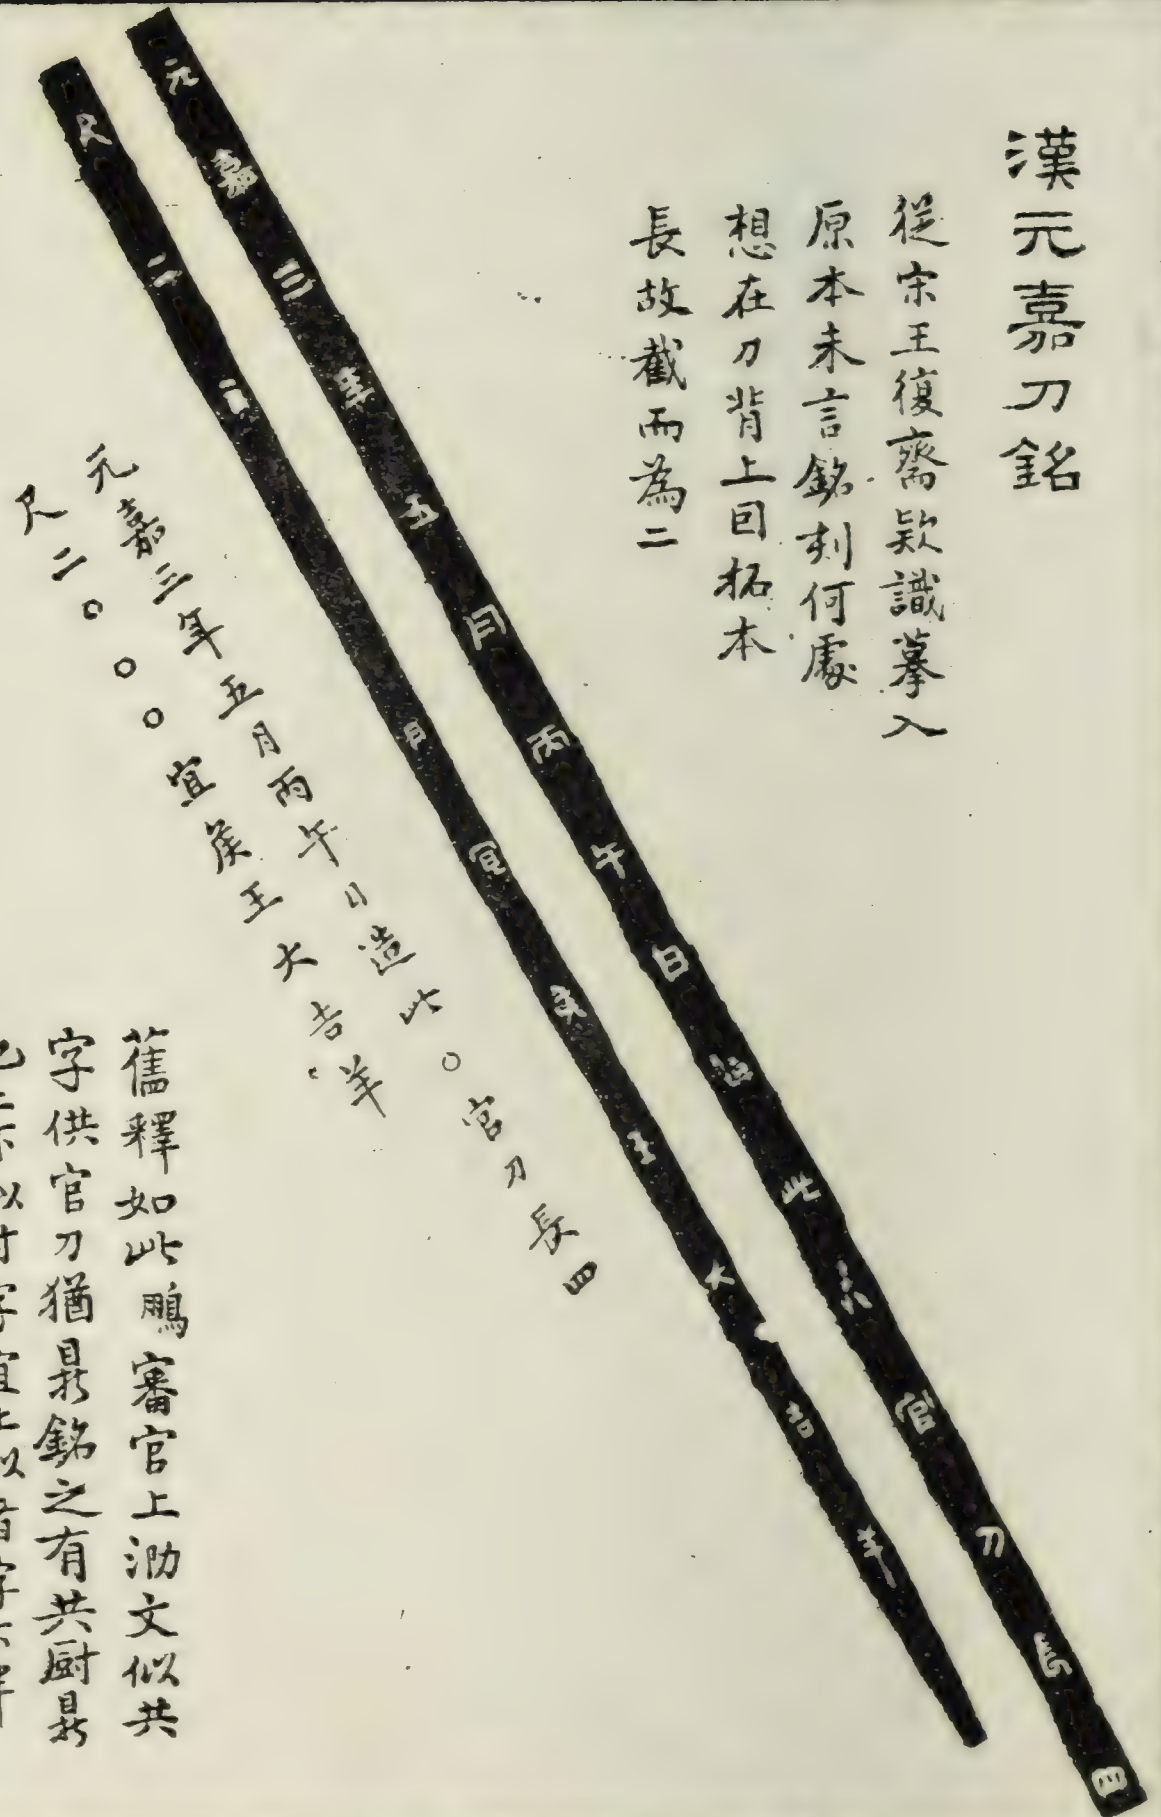 漢元嘉刀銘
從宋王復齋款識摹入
原本未言銘刻何處
想在刀背上因拓本
長故截而為二
元嘉三年五月丙午日造此官刀長四
尺二宜矦王大吉羊
元嘉三年五月丙午日造此〇官刀長四
尺二〇〇〇宜矦王大吉羊
舊釋如此鵬審官上泐文似共
字供官刀猶鼎銘之有共厨鼎